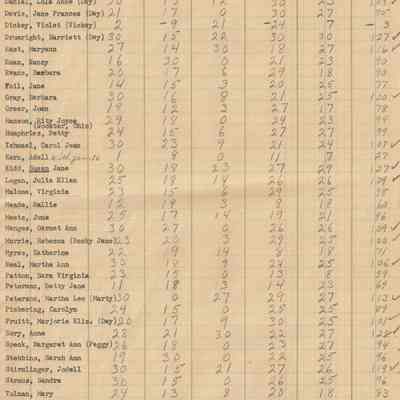 Daniel, Lula Anne (Day) 30
Davis, Jane Frances (Day) 21 17 0 30 27
Dickey, Violet (Vickey) 2 -9 21 -24 7 -3
Drumright, Harriett (Day) 30 15 22 30 30 127 ✓
East, Maryann 27 14 30 18 27 116 ✓
Eman, Nancy 16 30 0 21 23 90
Evans, Barbara 20 17 6 29 18 90
Foil, Jane 14 15 3 20 25 77
Gray, Barbara 30 16 8 21 25 100 ✓
Greer, Joan 18 12 3 27 17
Hanson, Rity Joyce 29 18 0 24 23
(Wooster, Ohio)
Humphries, Betty 24 15 6 27 27 99
Ishmael, Carol Jean 30 23 9 21 24 107 ✓
Kern, Adell 1 8 0 11 7 27
Kidd, Susan Jane 30 18 23 27 29 127 ✓
Logan, Julia Ellen 25 18 26 ✓
Malone, Virginia 23 15 6 29 25
Meade, Sallie 12 3 8 18 60
Meets, June 25 17 14 19 21 96
Menges, Garnet Ann 30 27 0 26 26 109 ✓
Morris, Rebecca (Becky Jane) 23 20 3 29 25 100 ✓
Myres, Katherine 22 9 14 8 18 71
Neal, Martha Ann 18 9 24 25 106 ✓
Patton, Sara Virginia 23 15 0 13 8 59
Petersen, Betty Jane 11 18 3 14 23 69
Peterson, Martha Lee (Marty) 30 0 27 29 27 113 ✓
Pickering, Carolyn 24 15 0 25 25 89
Pruitt, Marjorie Eliz. (Day) 20 17 9 30 25 101 ✓
Sery, Anne 21 30 22 27 ✓
Speak, Margaret Ann (Peggy) 26 18 0 23 27 94
Stebbins, Sarah Ann 19 30 0 22 25 96
Stirslinger, Jodell 30 15 21 27 26 119 ✓
Straus, Sandra 30 15 0 26 25 96
Tolman, Mary 24 13 8 20 18 83